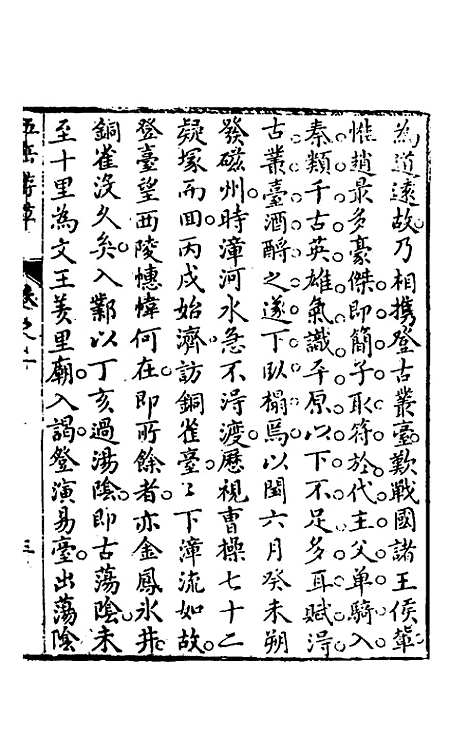 為道遠故乃相携登古叢臺歎戰國諸王侯輩
惟趙最多豪傑即簡子取符於代主父單騎入
秦類千古英雄氣識平原以下不足多耳賦得
古叢臺酒酹之遂下臥榻焉以閏六月癸未朔
發磁州時漳河水急不得渡歷視曹操七十二
疑塚而回丙戌始濟訪銅雀臺〻下漳流如故
登臺望西陵幰幃何在即所餘者亦金鳳氷井
銅雀沒久矣入鄴以丁亥過湯陰即古蕩陰未
至十里為文王羑里廟入謁登演易臺出蕩陰
五岳游草
卷之十
三